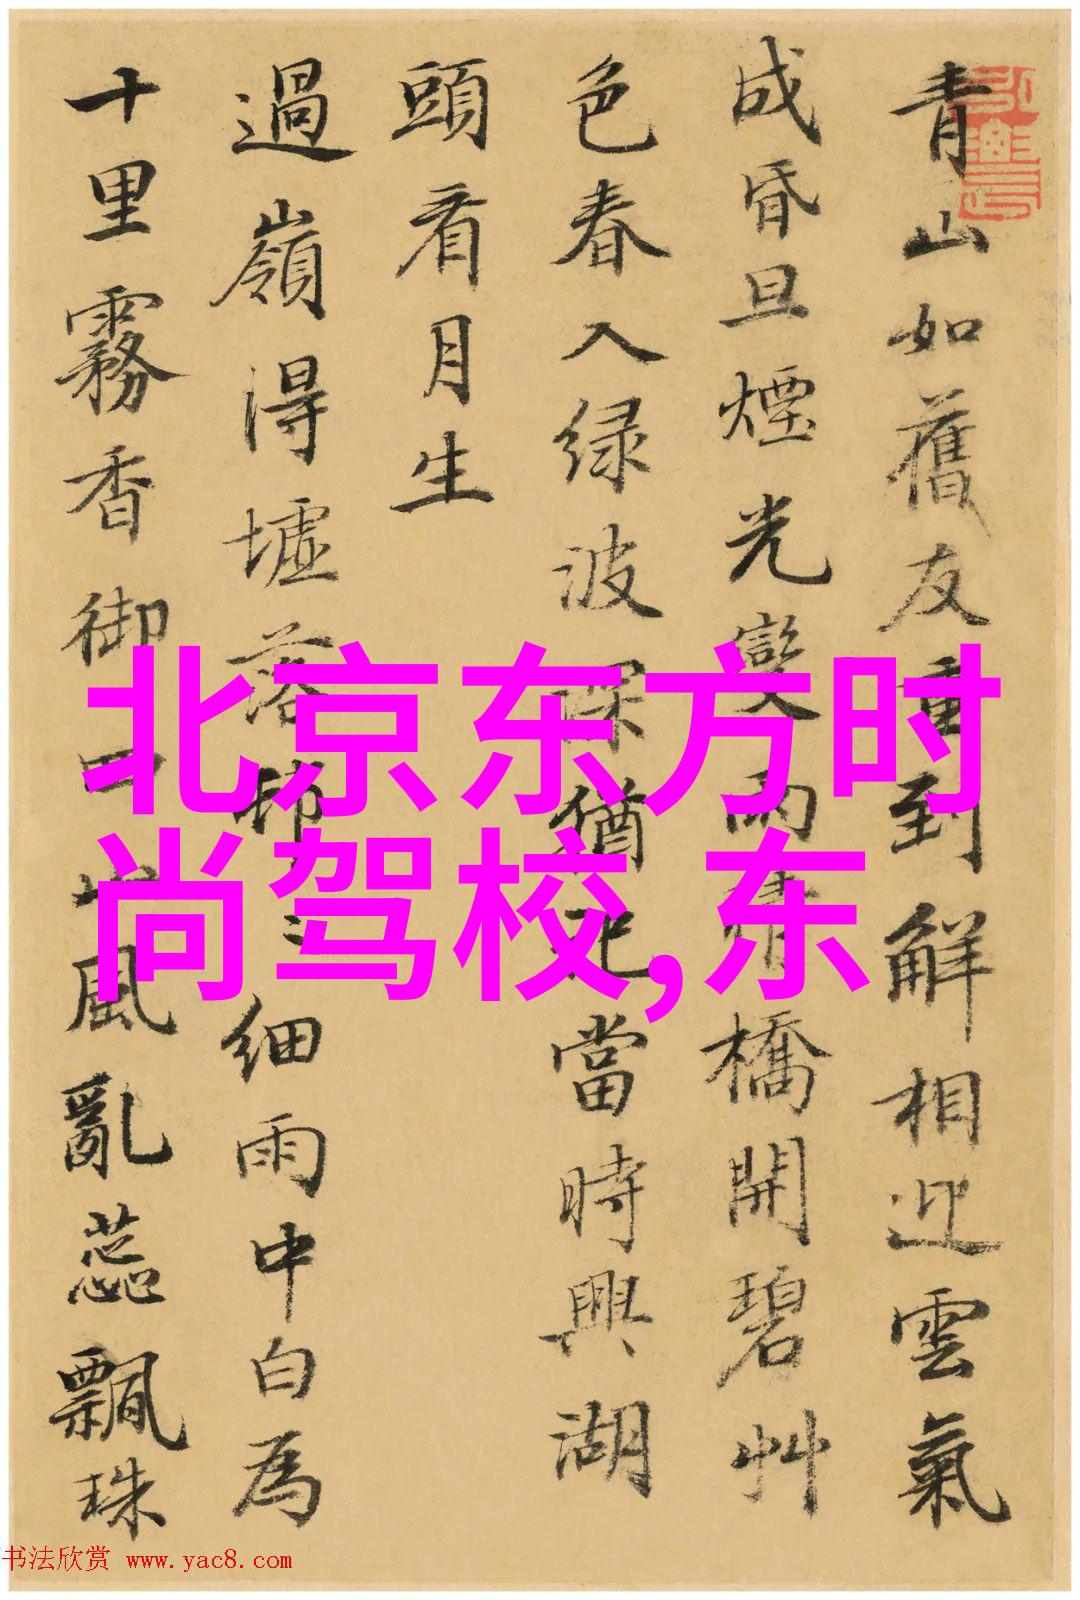 青山如舊友重到解相迎雲氣
成昏旦煙光變雨晴橋開碧艸
色春入绿波深猶記當時興湖
頭看月生
過嶺得墟落
細雨中白為
十里霧香御
風亂蕊飄珠
北京东方时
尚驾校,东
书法欣赏 www.yac8.com